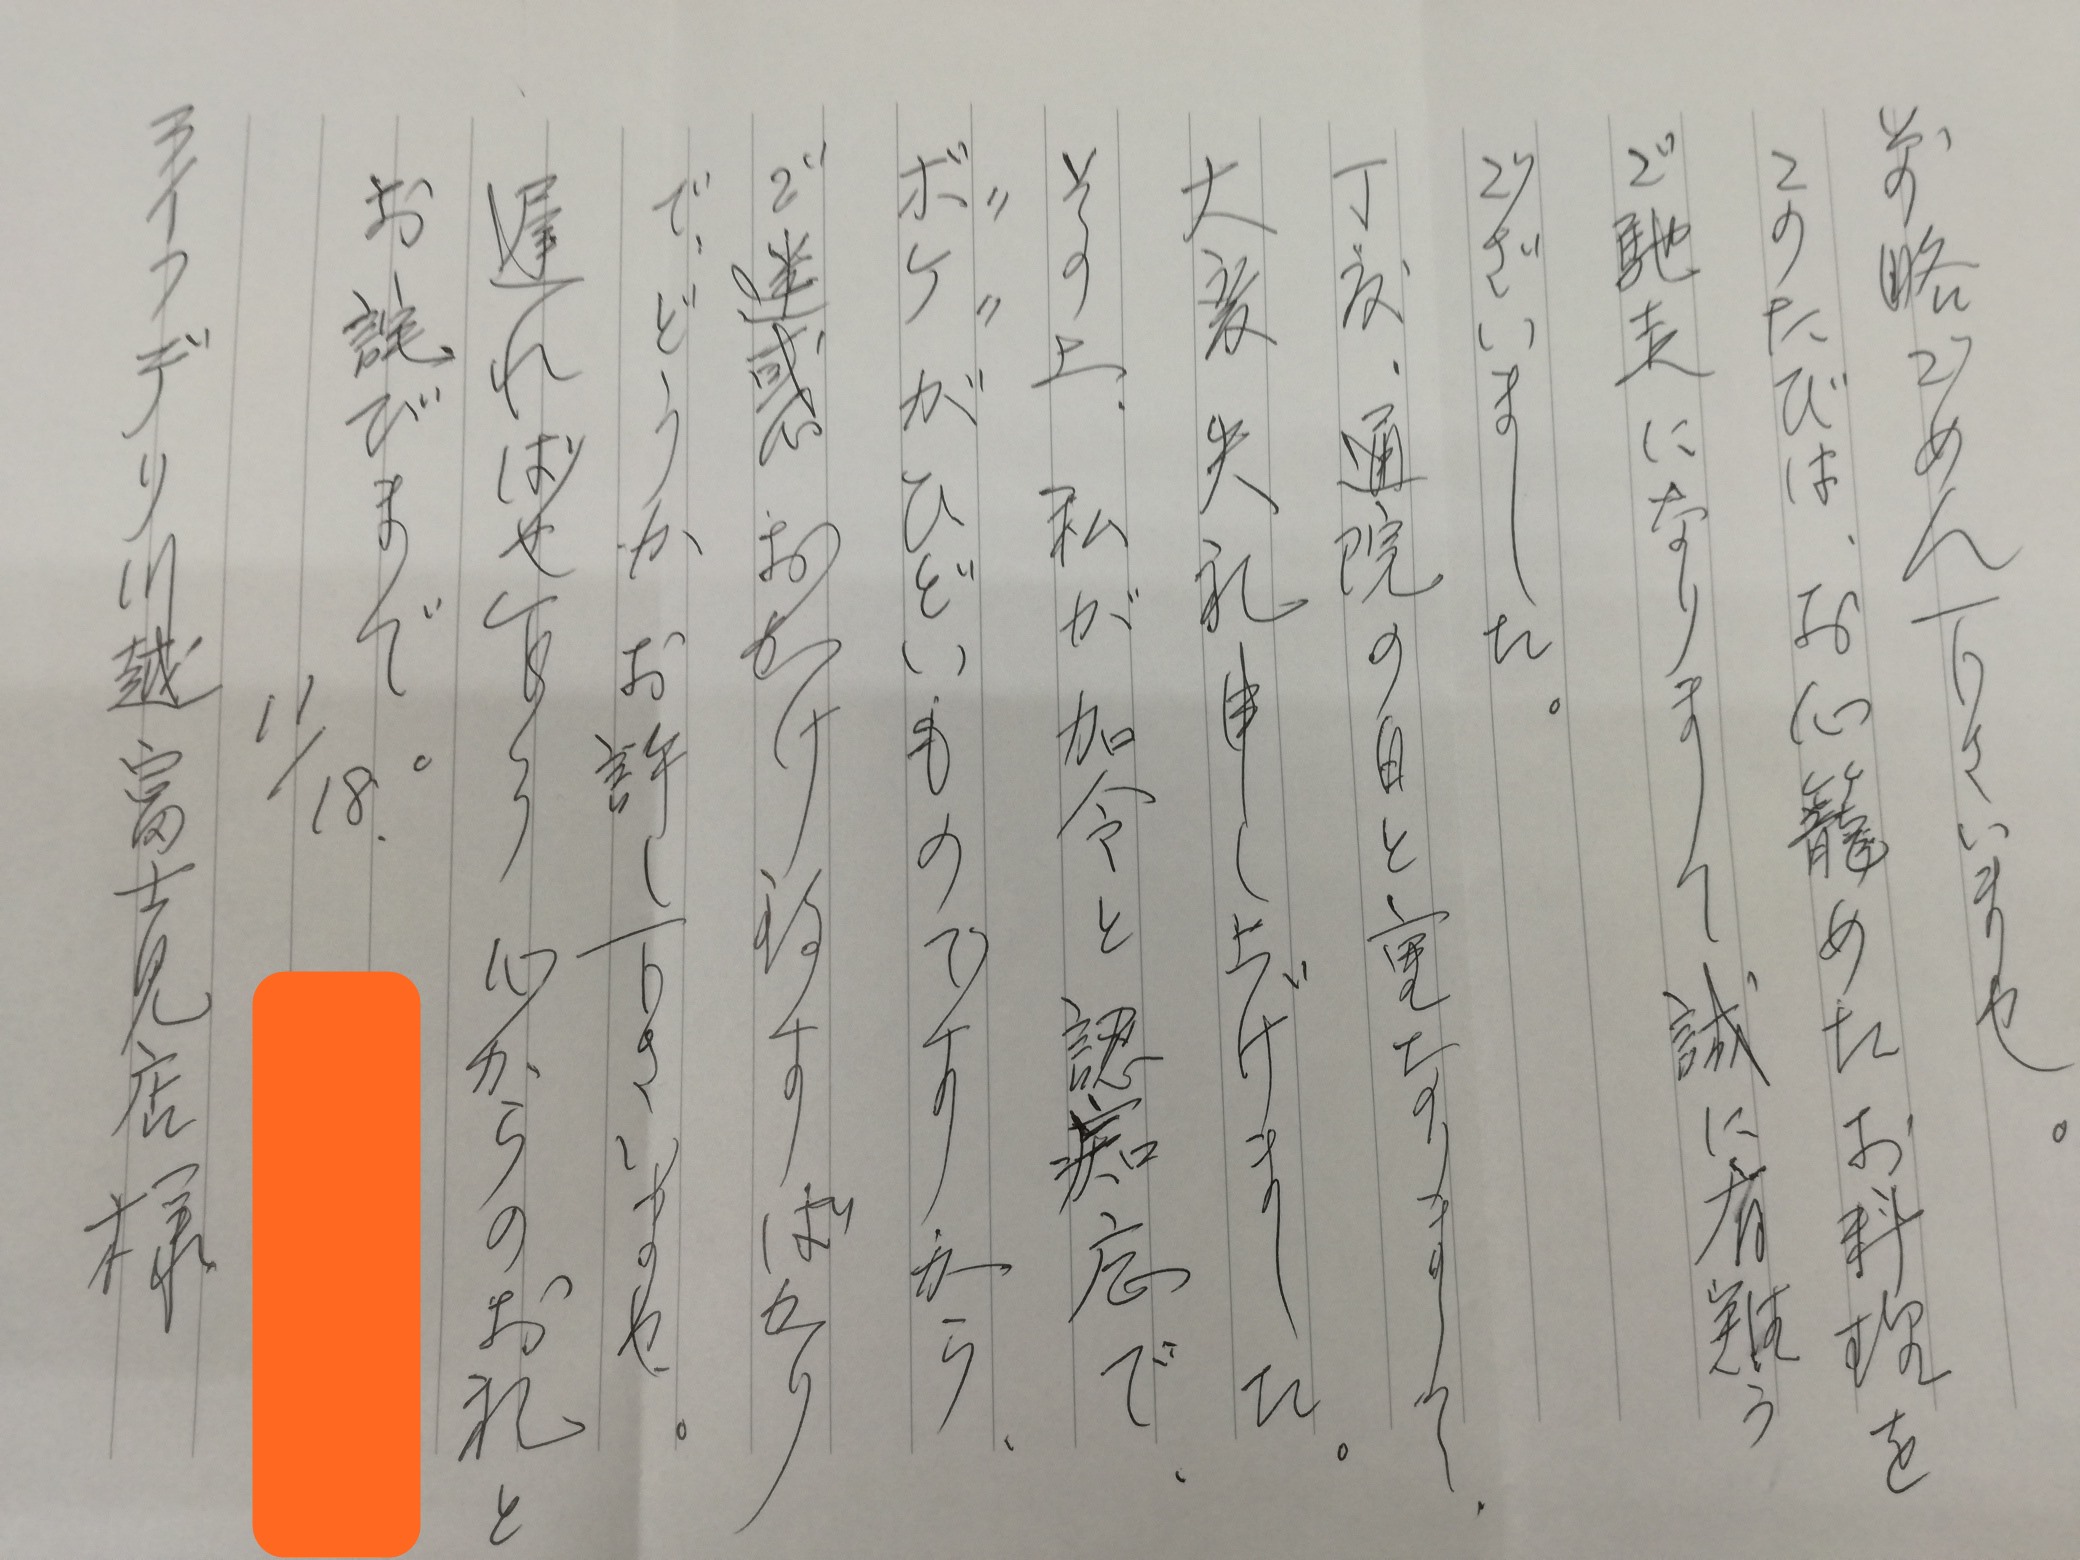 前略ごめん下さいませ。
このたびは、お心籠めたお料理を
ご馳走になりまして誠に有難う
ございました。
丁度、通院の日と重なりまして、
大変失礼申し上げました。
その上、私が加令と認痴症で、
ボ〃ケ〃がひどいものですから、
ご迷惑おかけ致すばかり
で、どうかお許し下さいませ。
遅ればせ乍ら心からのお礼と
お詫びまで。
11/18.
ライフデリ川越富士見店様